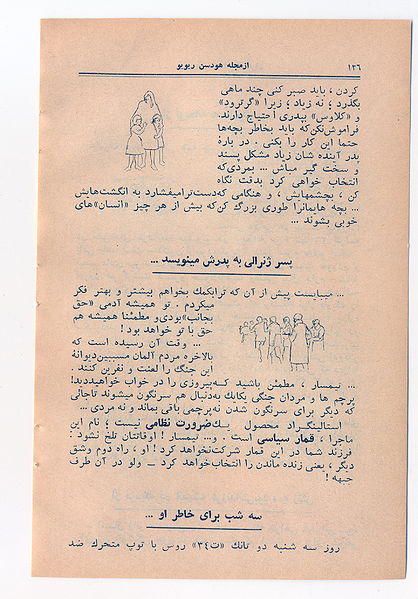 ۱۳۶
از مجله هودسن ریویو
کردن ، باید صبر کنی چند ماهی
بگذرد ؛ نه زیاد ؛ زیرا «گرترود»
و «کلاوس» بپدری احتیاج دارند.
فراموش نکن که باید بخاطر بچه‌ها
حتما این کار را بکنی . در بارهٔ
پدر آینده شان زیاد مشکل پسند
و سخت گیر مباش ... بمردی که
انتخاب خواهی کرد بدقت نگاه
کن ، بچشمهایش ، و هنگامی که دست ترا میفشارد به انگشت‌هایش
... بچه هایمانرا طوری بزرگ کن که بیش از هر چیز «انسان»های
خوبی بشوند ...
پسر ژنرالی به پدرش مینویسد ...
... میبایست پیش از آن که ترا بکمک بخواهم بیشتر و بهتر فکر
میکردم . تو همیشه آدمی «حق
بجانب» بودی و مطمئنا همیشه هم
حق با تو خواهد بود !
... وقت آن رسیده است که
بالاخره مردم آلمان مسببین دیوانهٔ
این جنگ را لعنت و نفرین کنند .
... تیمسار ، مطمئن باشید که پیروزی را در خواب خواهید دید!
پرچم ها و مردان جنگی یکایک بدنبال هم سرنگون میشوند تا جائی
که دیگر برای سرنگون شدن نه پرچمی باقی بماند و نه مردی ...
استالینگراد محصول یک ضرورت نظامی نیست ؛ نام این
ماجرا ، قمار سیاسی است . و... تیمسار ! اوقاتتان تلخ نشود :
فرزند شما در این قمار شرکت نخواهد کرد ! او ، راه دوم وشق
دیگر ، یعنی زنده ماندن را انتخاب خواهد کرد ــ ولو در آن طرف
جبهه !
سه شب برای خاطر او ...
روز سه شنبه دو تانک «ت۳۴» روس با توپ متحرک ضد